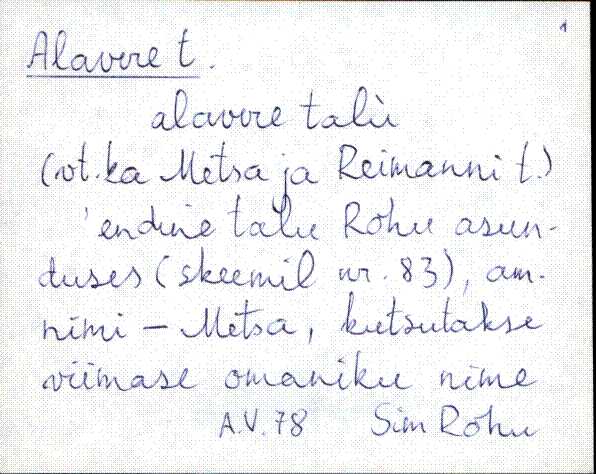 1
Alavere t.
alavere talù
(vt. ka Metsa ja Reimanni t.)
'endine talu Rohu asun-
duses (skeemil nr. 83), am.
nimi – Metsa, kutsutakse
viimase omaniku nime
A.V. 78 Sim Rohu